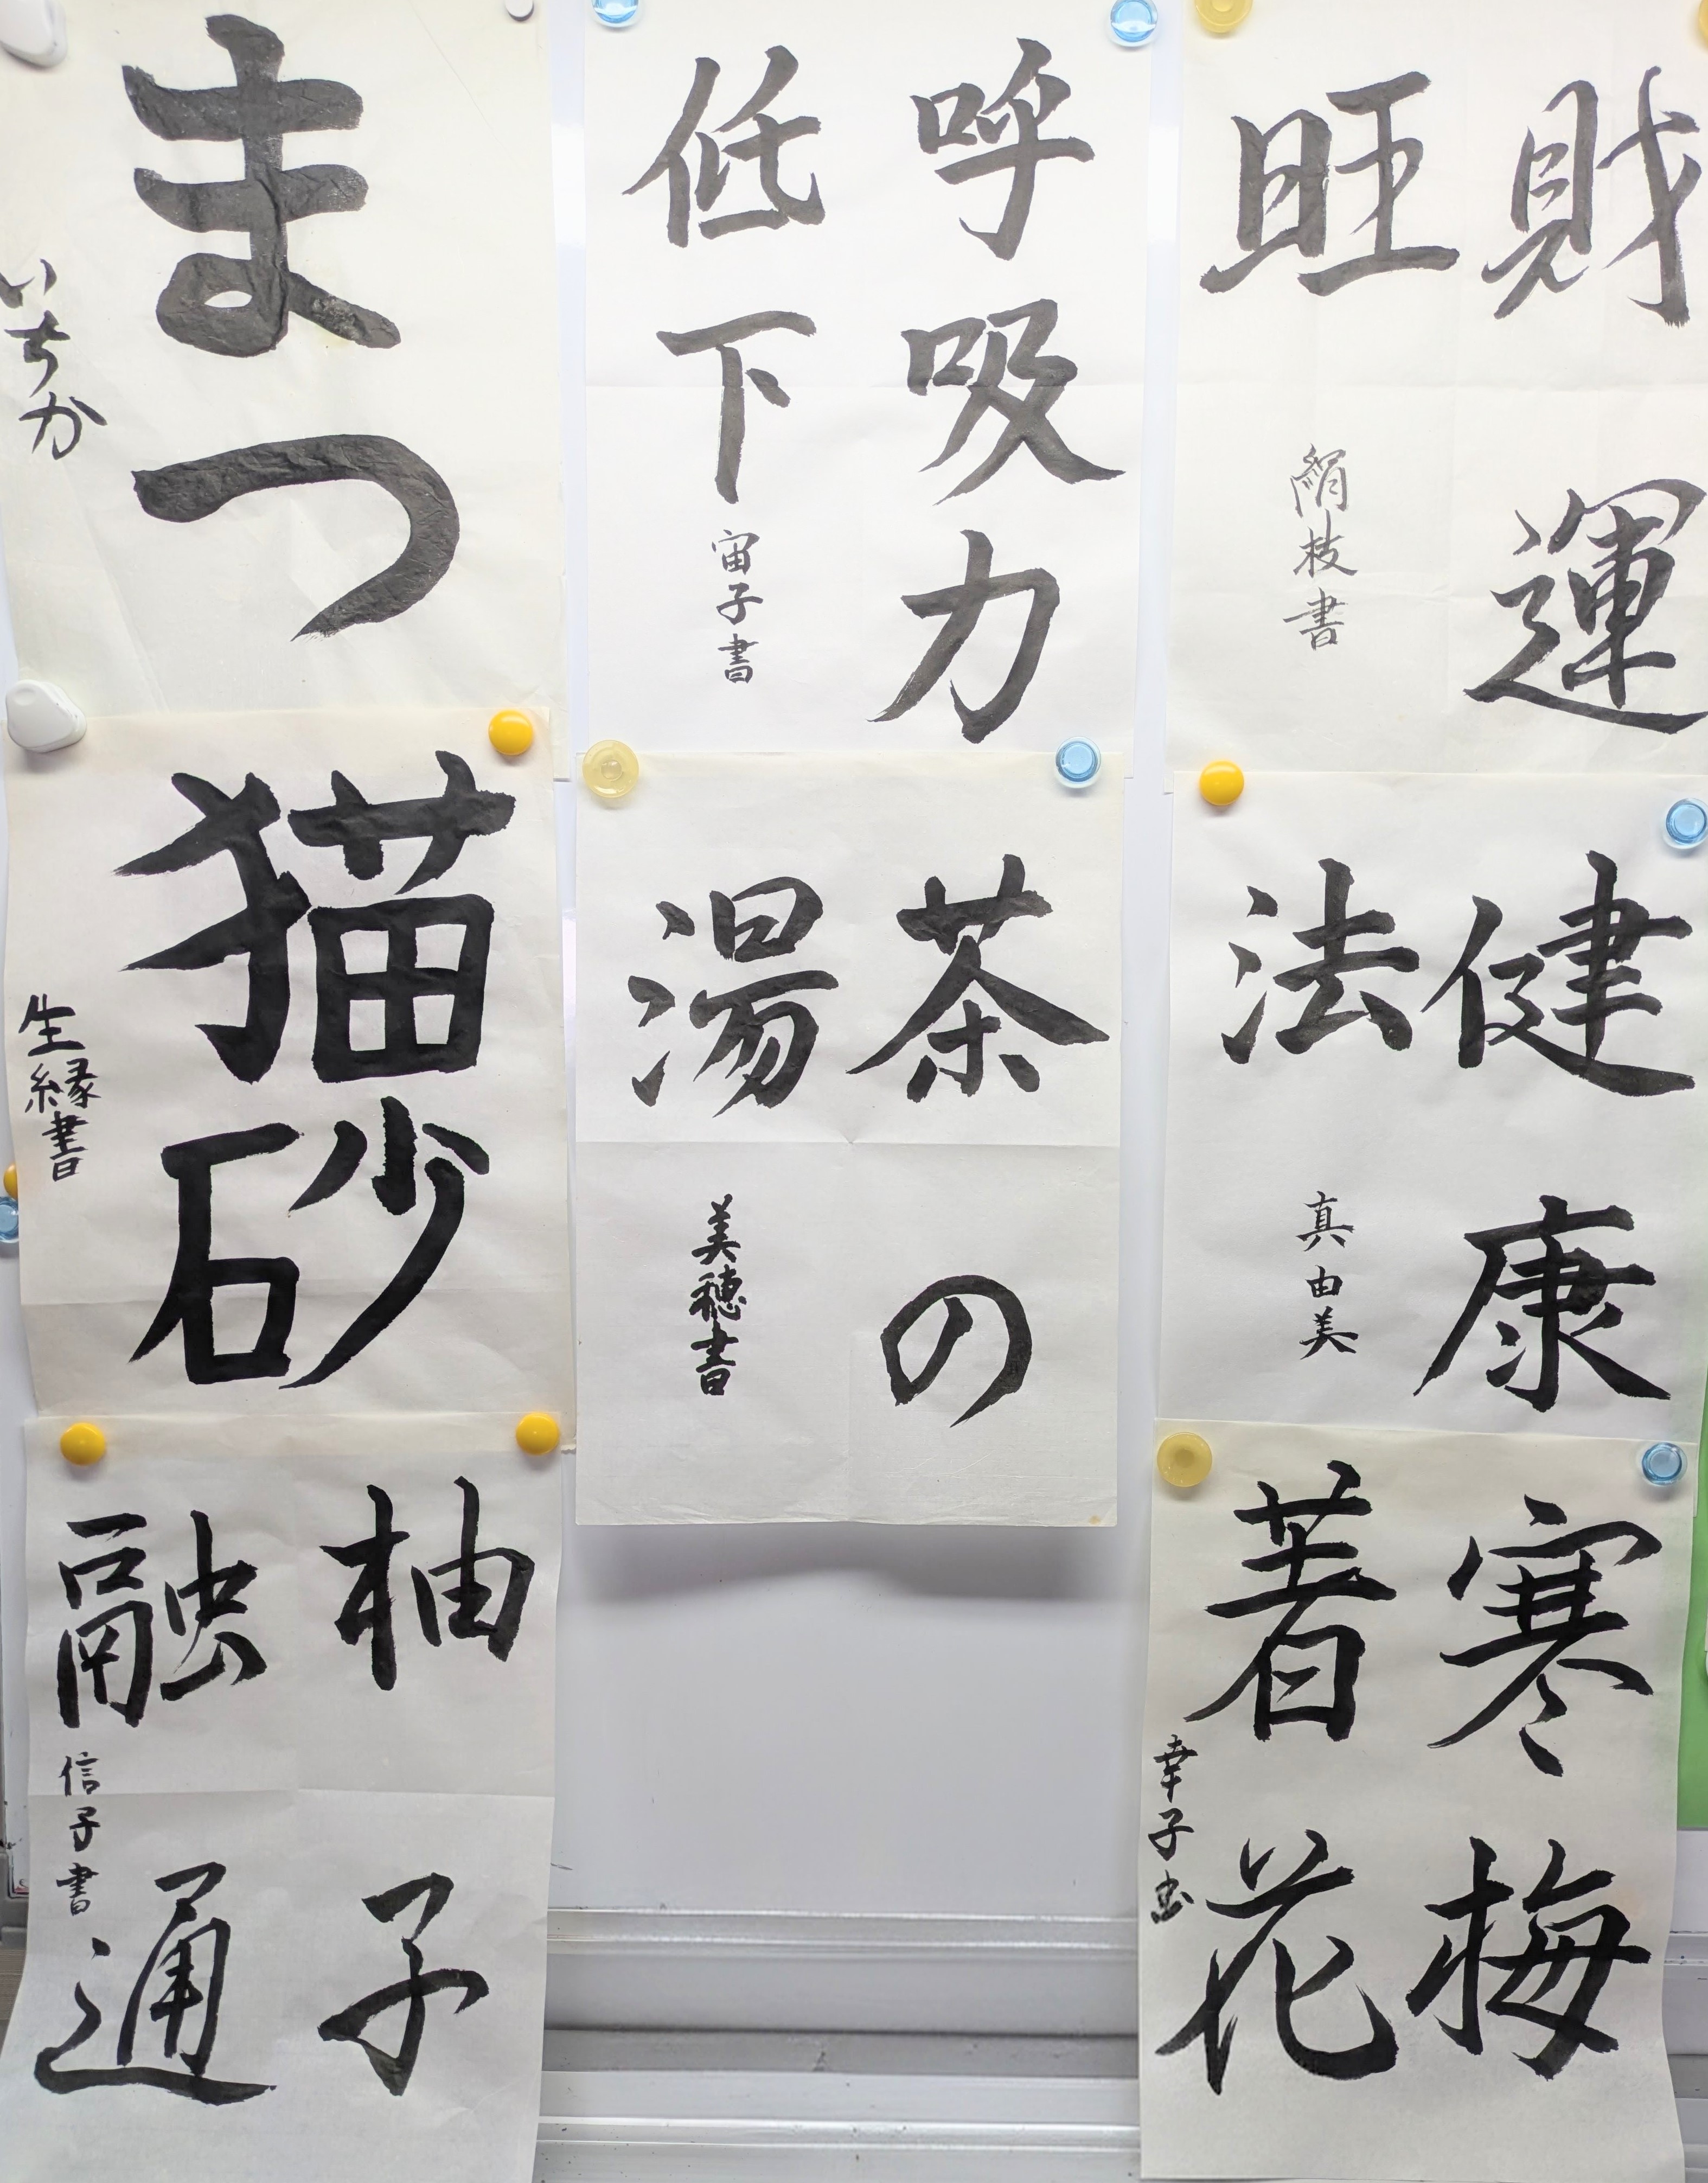 財運
旺
絹枝書
呼吸力
低下
宙子書
まつ
いちか
健康
法
真由美
茶の
湯
美穂書
猫砂
生縁書
寒梅
著花
幸子書
柚子
融通
信子書